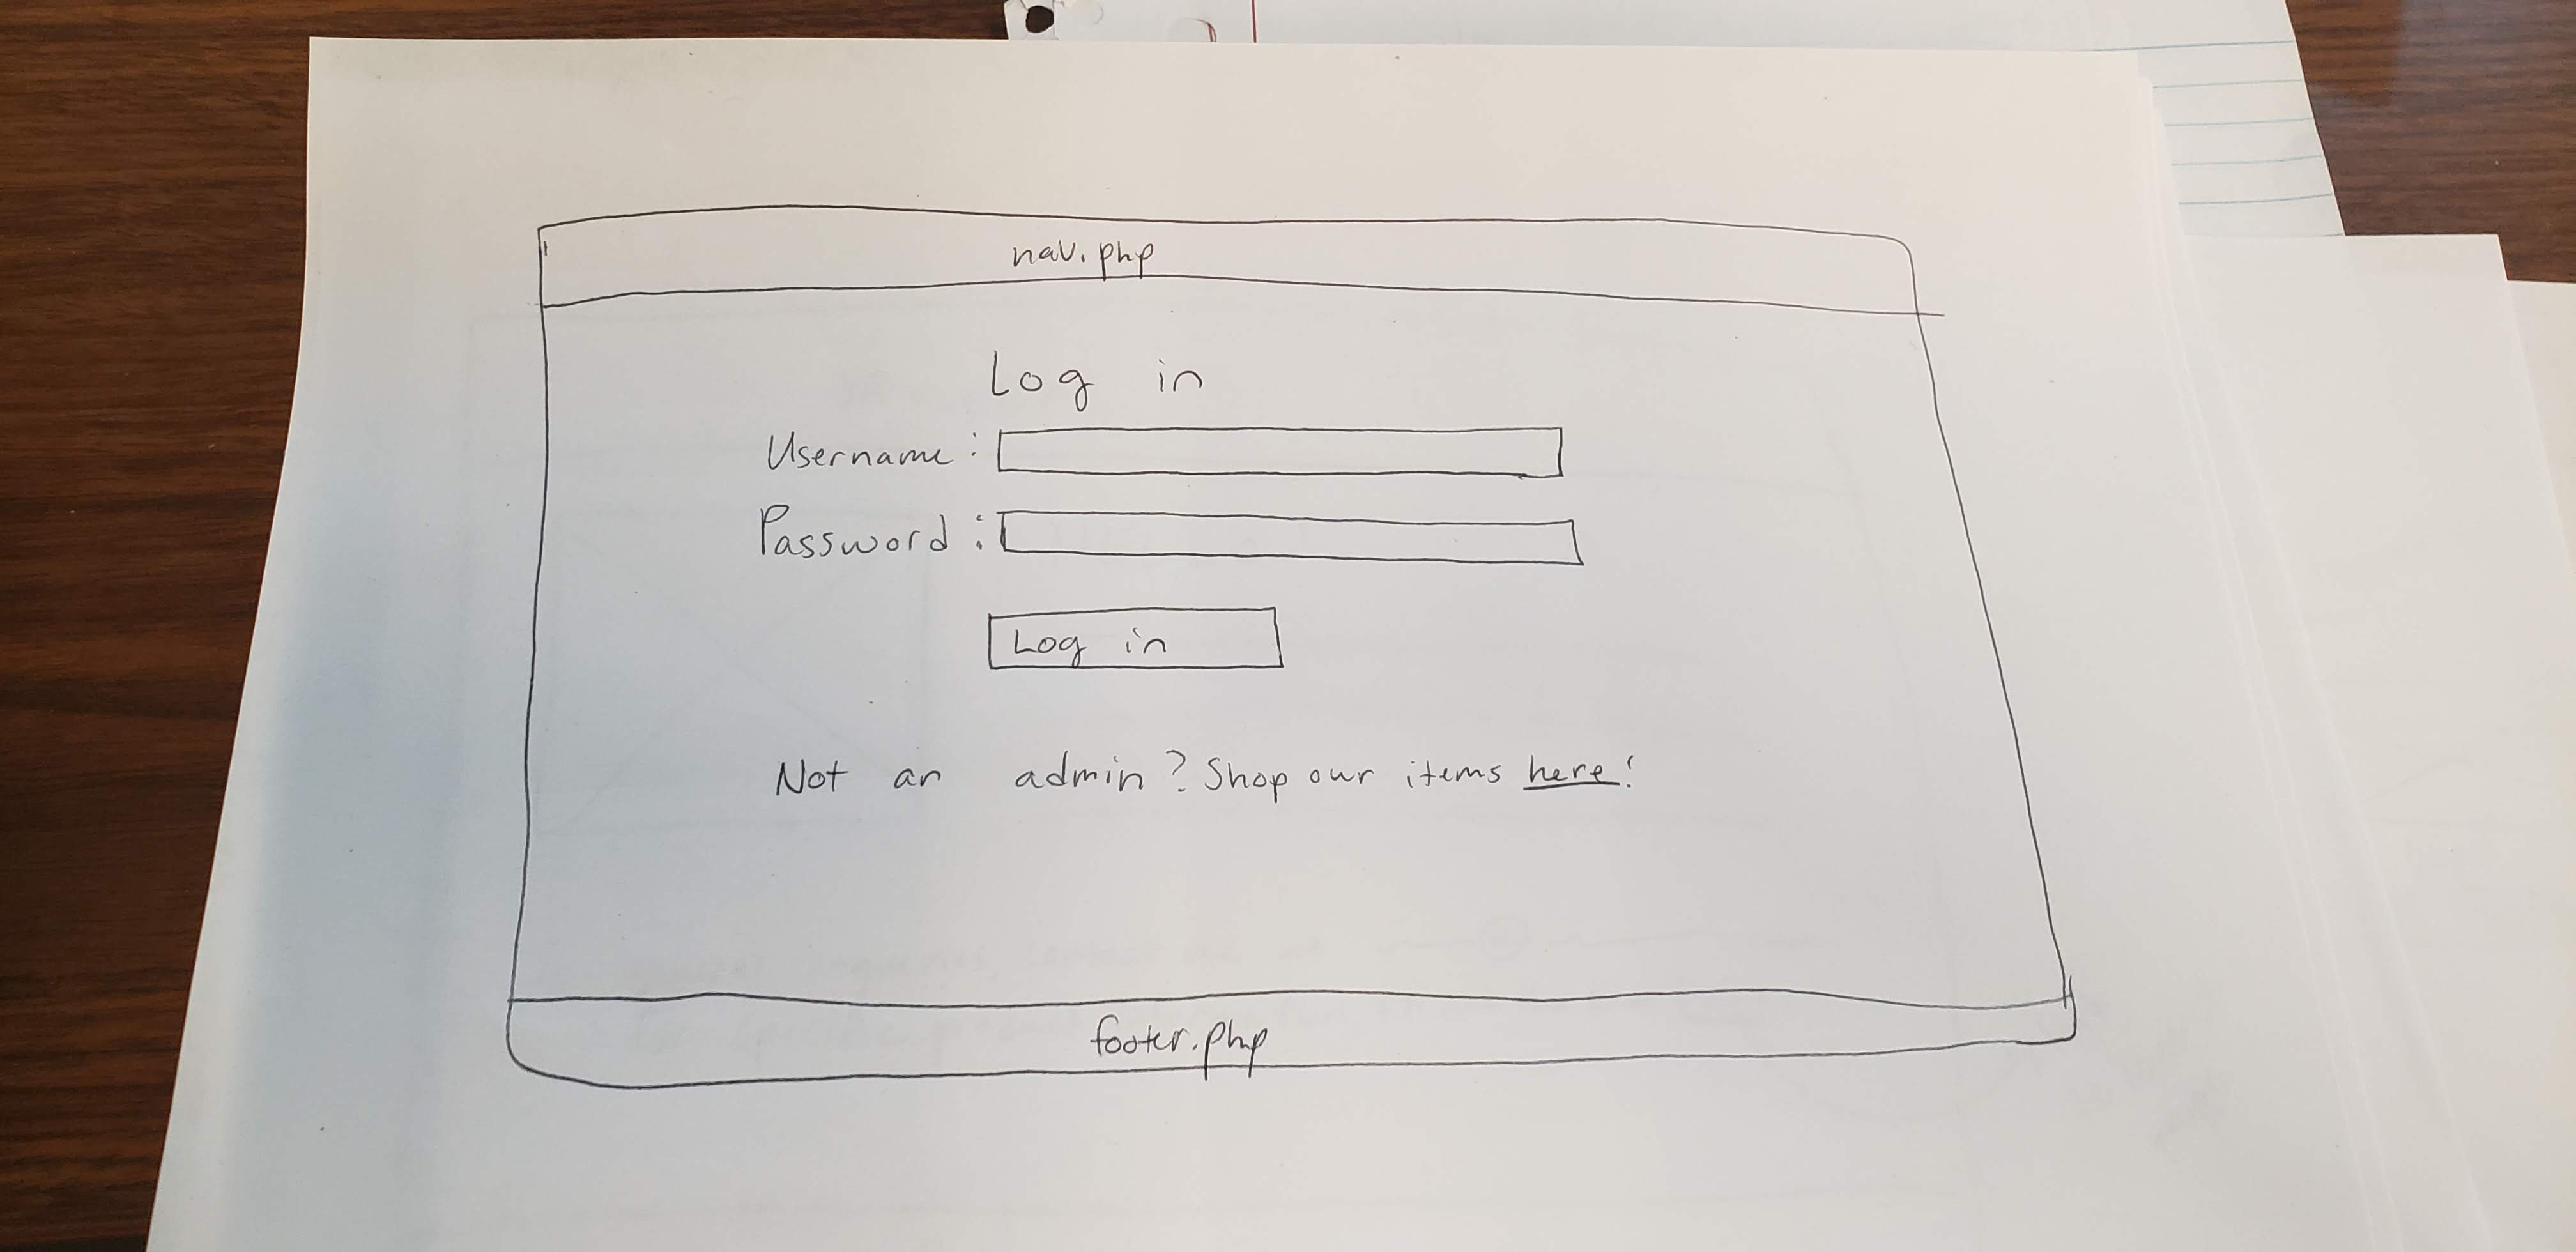 nav.php
Log in
Username:
Password:
Log in
Not an admin? Shop our items here!
footer.php